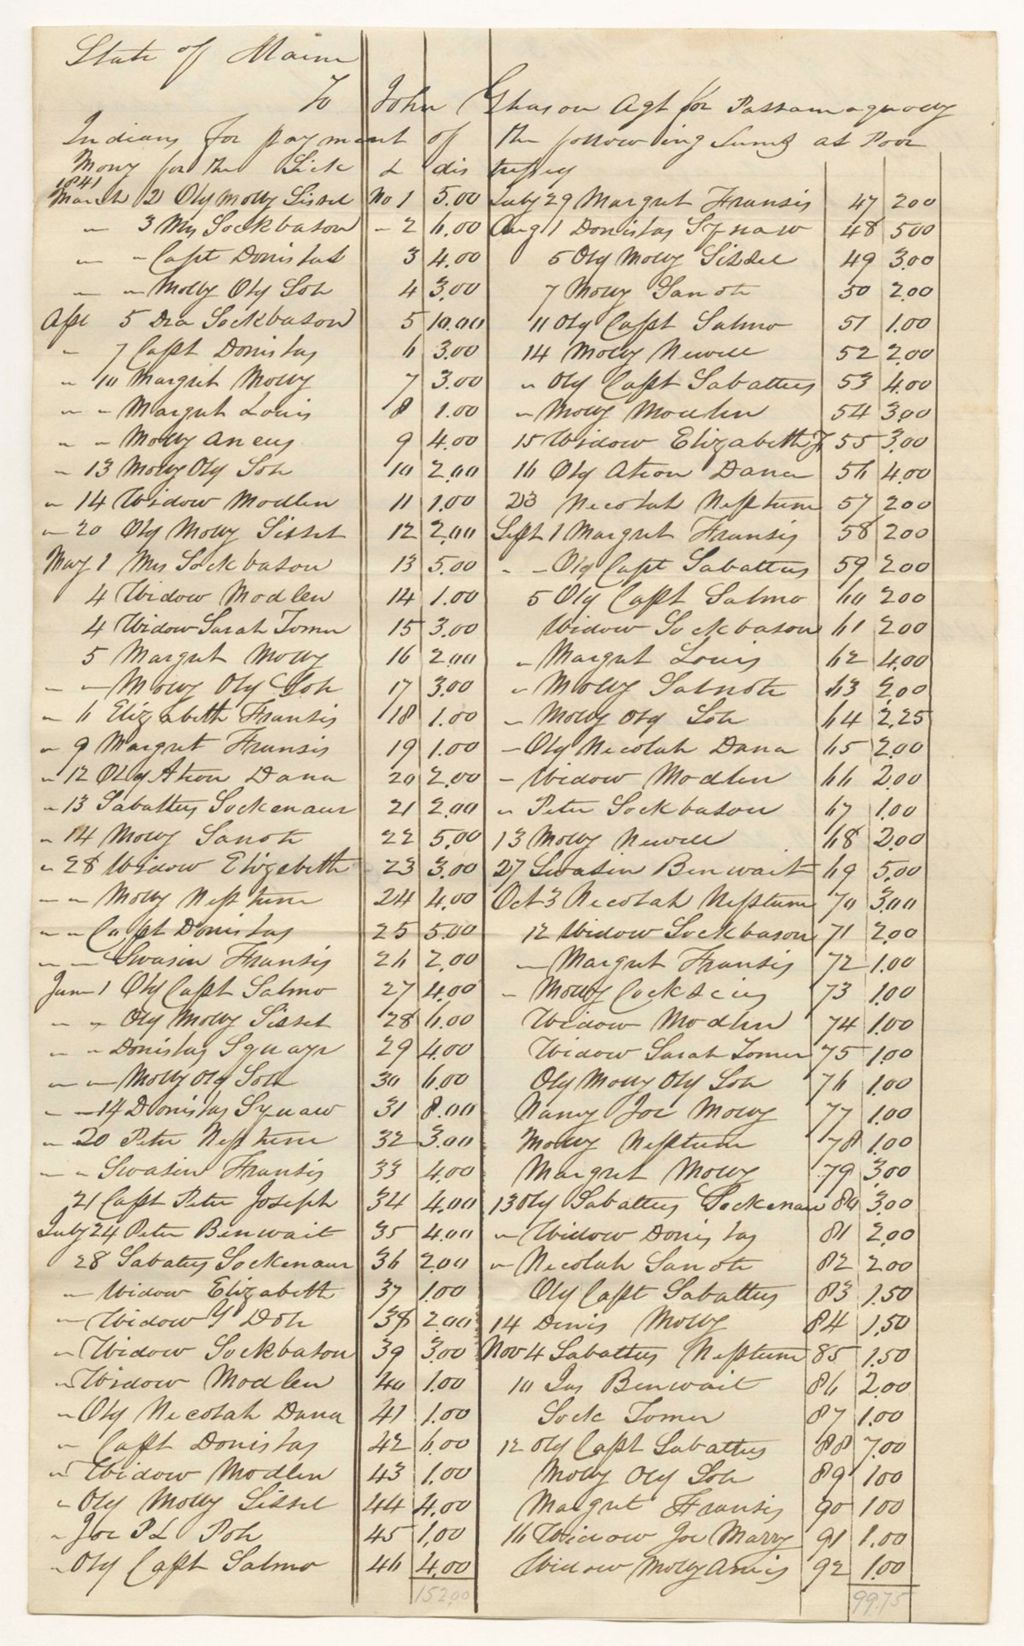 State of Maine
To John Gleason Agt for Passamaquody
Indians for payment of the following Sums as Poor
Mony for the Sick & distressed
1841
March 2 Old Molly Sissel No 1 5.00
" 3 Mrs Sockbason - 2 6.00
" " Capt Donislas 3 4.00
" " Molly Old Soh 4 3.00
Apl 5 Dea Sockbason 5 10.00
" 7 Capt Donislas 6 3.00
" 10 Margrit Molly 7 3.00
" " Margrit Louis 8 1.00
" " Molly 9 4.00
" 13 Molly Old Soh 10 2.00
" 14 Widow Modlen 11 1.00
" 20 Old Molly Sissel 12 2.00
May 1 Mrs Sockbason 13 5.00
4 Widow Modlen 14 1.00
4 Widow Sarah Tomer 15 3.00
5 Margret Molly 16 2.00
" " Molly Old Soh 17 3.00
" 6 Elizabeth Fransis 18 1.00
" 9 Margret Fransis 19 1.00
" 12 Old Ateon Dana 20 2.00
" 13 Sabattus Sockenaur 21 2.00
" 14 Molly Sanoh 22 5.00
" 28 Widow Elizebeth 23 3.00
" " Molly Neptune 24 4.00
" " Capt Donislas 25 5.00
" " Swasin Fransis 26 2.00
June 1 Old Capt Salmo 27 4.00
" " Old Molly Sissel 28 6.00
" " Donislas 29 4.00
" " Molly Old Soh 30 6.00
" " 14 Donislas Squaw 31 8.00
" 20 Peter Neptune 32 3.00
" " Swasin Fransis 33 4.00
21 Capt Peter Joseph 34 4.00
July 24 Peter Benwait 35 4.00
28 Sabatus Sockenaur 36 2.00
" Widow Elizabeth 37 1.00
" Widow 38 2.00
" Widow Sockbason 39 3.00
" Widow Modlen 40 1.00
" Old Necolah Dana 41 1.00
" Capt Donislas 42 6.00
" Widow Modlen 43 1.00
" Old Molly Sissel 44 4.00
" Joe 45 1.00
" Old Capt Salmo 46 4.00
152.00
July 29 Margrut Fransis 47 2.00
Aug 1 Donislas Squaw 48 5.00
5 Old Molly Sissel 49 3.00
7 Molly Sanoh 50 2.00
11 Old Capt Salmo 51 1.00
14 Molly Newell 52 2.00
" Old Capt Sabattus 53 4.00
" Molly Modlen 54 3.00
15 Widow Elizabeth J 55 3.00
16 Old Ateon Dana 56 4.00
23 Necolah Neptune 57 2.00
Sept 1 Margret Fransis 58 2.00
" " Old Capt Sabattus 59 2.00
5 Old Capt Salmo 60 2.00
Widow Sockbason 61 2.00
" Margrut Louis 62 4.00
" Molly Sabnoh 63 2.00
" Molly Old Soh 64 2.25
" Old Necolah Dana 65 2.00
" Widow Modlen 66 2.00
" Peter Sockbason 67 1.00
13 Molly Newell 68 2.00
27 Swasin Benwait 69 5.00
Oct 3 Necolah Neptune 70 3.00
12 Widow Sockbason 71 2.00
" Margrut Fransis 72 1.00
" Molly 73 1.00
Widow Modlen 74 1.00
Widow Sarah Tomer 75 1.00
Old Molly Old Soh 76 1.00
Nancy Joe Molly 77 1.00
Molly Neptune 78 1.00
Margret Molly 79 3.00
13 Old Sabattus Sockenaur 80 3.00
" Widow Donislas 81 2.00
" Necolah Sanoh 82 2.00
Old Capt Sabattus 83 1.50
14 Denis Molly 84 1.50
Nov 4 Sabattus Neptune 85 1.50
10 Jas Benwait 86 2.00
Sock Tomer 87 1.00
12 Old Capt Sabattus 88 7.00
Molly Old Soh 89 1.00
Margrut Fransis 90 1.00
16 Widow Joe Marry 91 1.00
Widow Molly 92 1.00
99.75